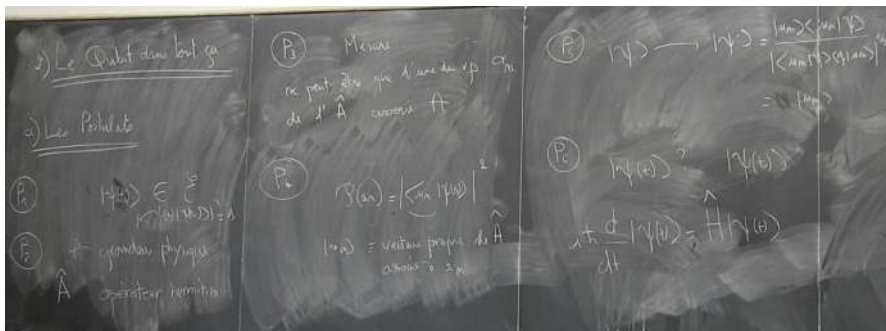 2) Le Qubit dans tout ça
a) Les Postulats
P1 |ψ(t)> ∈ ℰ
|<ψ(t)|ψ(t)>|² = 1
P2 grandeur physique
Â opérateur hermitien
P3 Mesure
ne peut être que d'une
de l' Â associé A
P4 P(an) = |<un|ψ(t)>|²
|un> ≡ vecteur propre de Â
associé à an
P5 |ψ> → |ψ'> = |un><un|ψ> / |<un|ψ><ψ|un>|
= |un>
P6 |ψ(t)> ? |ψ(t)>
iħ d/dt |ψ(t)> = Ĥ |ψ(t)>